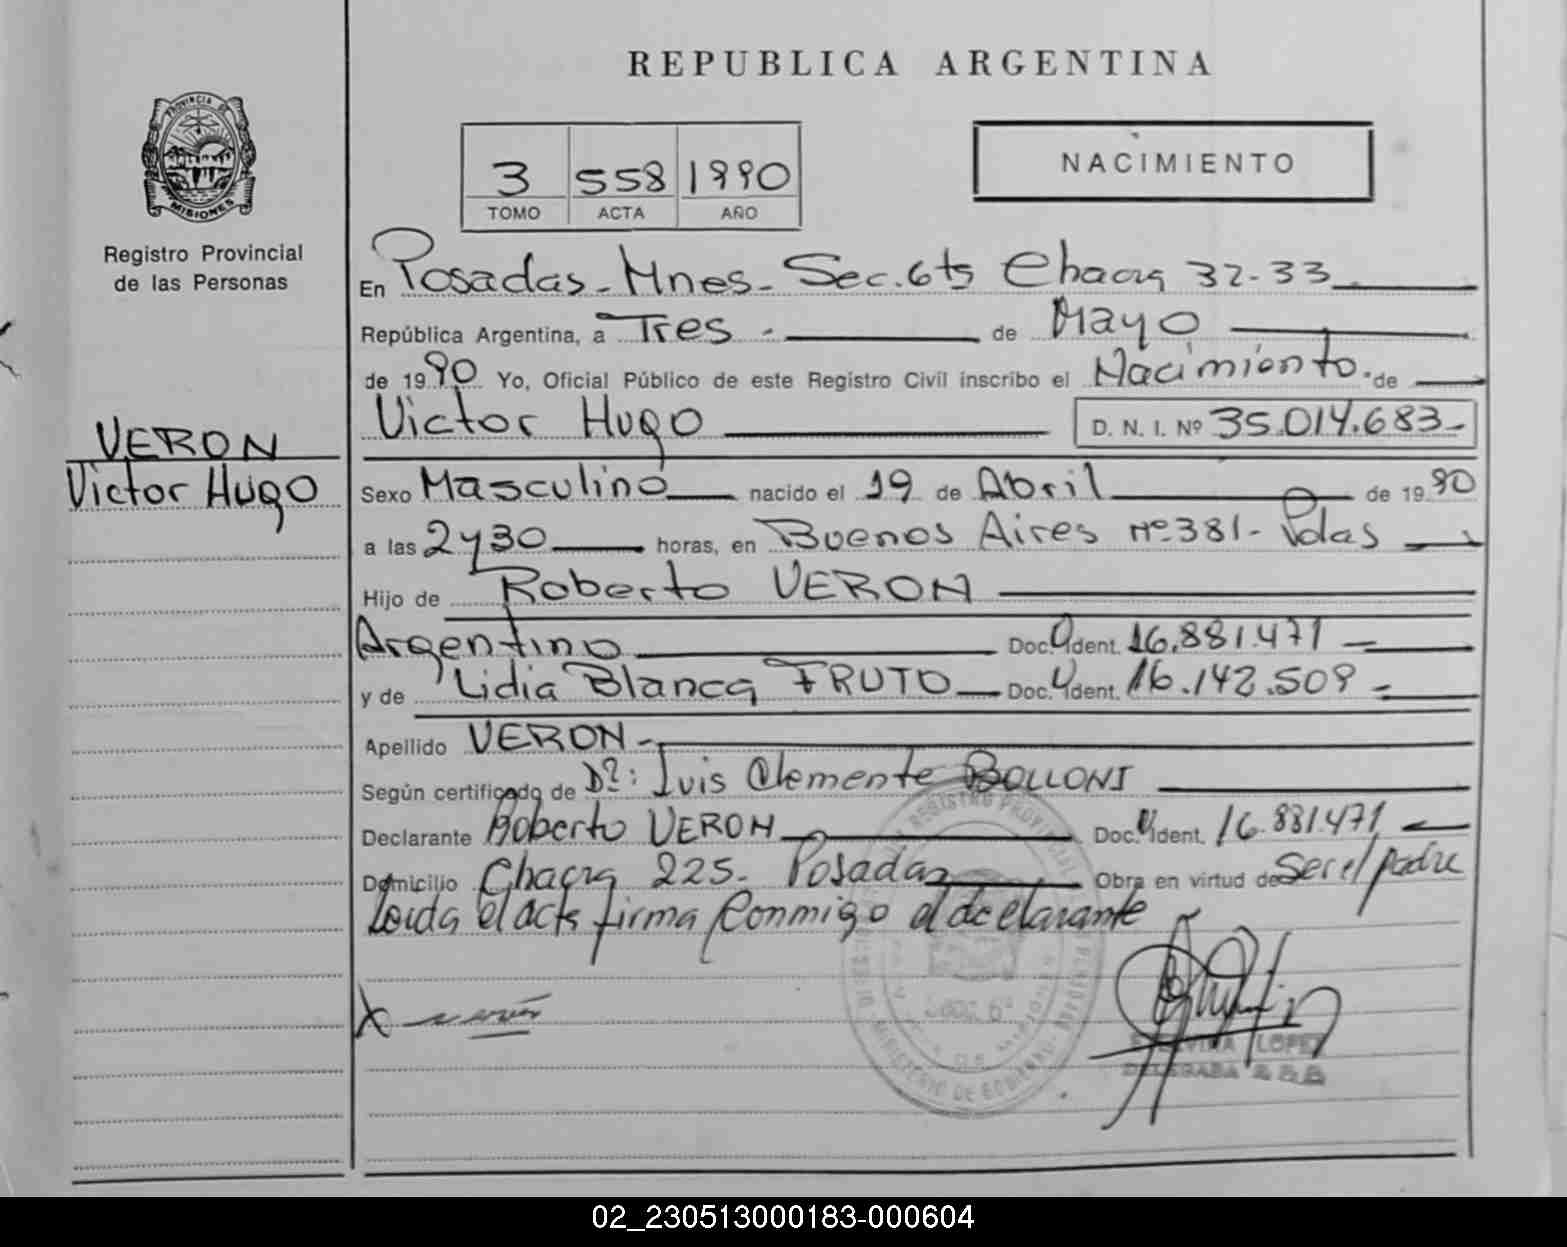 REPUBLICA ARGENTINA
PROVINCIA DE
MISIONES
Registro Provincial
de las Personas
3 558 1990
TOMO ACTA AÑO
NACIMIENTO
En Posadas - Mnes - Sec. 6ta Chacra 32-33
República Argentina, a Tres - de Mayo
de 1990 Yo, Oficial Público de este Registro Civil inscribo el Nacimiento. de
Victor Hugo D. N. I. Nº 35.014.683-
VERON
Victor Hugo
Sexo Masculino nacido el 19 de Abril de 1990
a las 2 y 30 horas, en Buenos Aires Nº 381 - Pdas
Hijo de Roberto VERON
Argentino Doc. Ident. 16.881.471
y de Lidia Blanca FRUTO Doc. Ident. 16.142.509
Apellido VERON -
Según certificado de Dr: Luis Clemente BOLLONI
Declarante Roberto VERON Doc. Ident. 16.881.471
Domicilio Chacra 225. Posadas Obra en virtud de Ser el padre
Leida el acta firma conmigo el declarante
REGISTRO PROVINCIAL
MINISTERIO DE GOBIERNO
LOPEZ
02_230513000183-000604